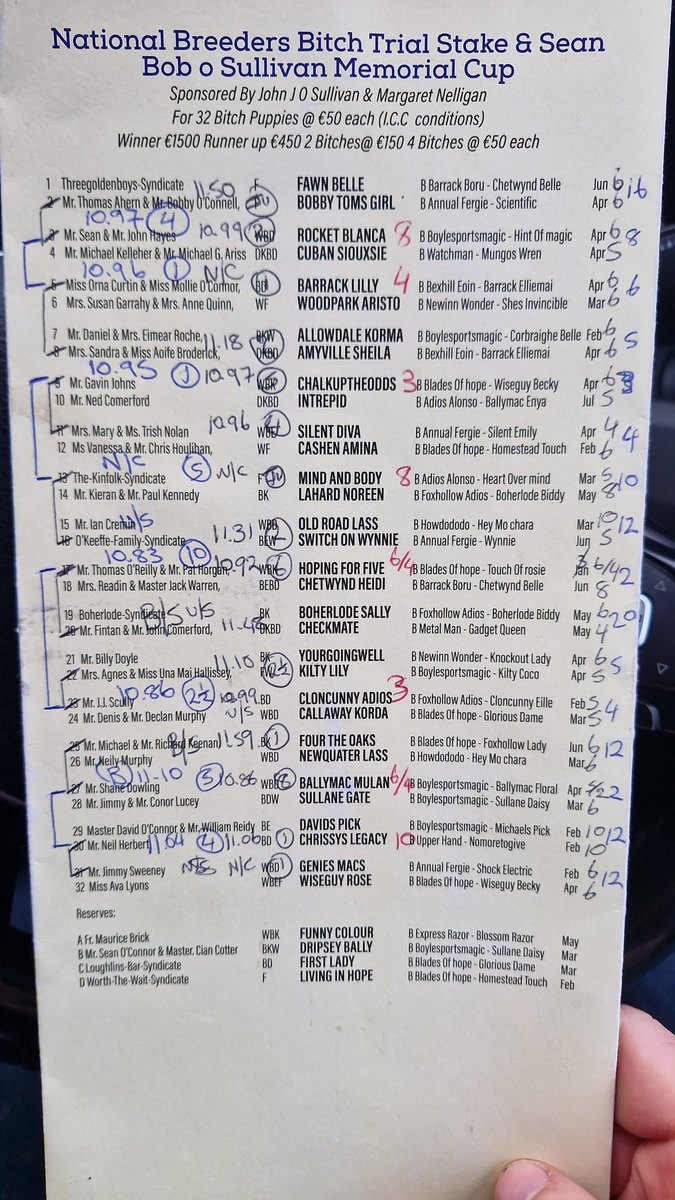 National Breeders Bitch Trial Stake & Sean
Bob o Sullivan Memorial Cup
Sponsored By John J O Sullivan & Margaret Nelligan
For 32 Bitch Puppies @ €50 each (I.C.C conditions)
Winner €1500 Runner up €450 2 Bitches@ €150 4 Bitches @ €50 each
1 Threegoldenboys-Syndicate 11.50 F FAWN BELLE B Barrack Boru - Chetwynd Belle Jun 6 16
2 Mr. Thomas Ahern & Mr. Bobby O'Connell, BOBBY TOMS GIRL B Annual Fergie - Scientific Apr 6
10.97 4 10.99
3 Mr. Sean & Mr. John Hayes WBD ROCKET BLANCA 8 B Boylesportsmagic - Hint Of magic Apr 6 8
4 Mr. Michael Kelleher & Mr. Michael G. Ariss DKBD CUBAN SIOUXSIE B Watchman - Mungos Wren Apr 5
10.96 1 N/C
5 Miss Orna Curtin & Miss Mollie O'Connor, BD BARRACK LILLY 4 B Bexhill Eoin - Barrack Elliemai Apr 6 6
6 Mrs. Susan Garrahy & Mrs. Anne Quinn, WF WOODPARK ARISTO B Newinn Wonder - Shes Invincible Mar 6
7 Mr. Daniel & Mrs. Eimear Roche, 11.18 BKW ALLOWDALE KORMA B Boylesportsmagic - Corbraighe Belle Feb 6 5
8 Mrs. Sandra & Miss Aoife Broderick, DKBD AMYVILLE SHEILA B Bexhill Eoin - Barrack Elliemai Apr 6
10.95 1 10.97
9 Mr. Gavin Johns WBK CHALKUPTHEODDS 3 B Blades Of hope - Wiseguy Becky Apr 6 3
10 Mr. Ned Comerford DKBD INTREPID B Adios Alonso - Ballymac Enya Jul 5
10.96
11 Mrs. Mary & Ms. Trish Nolan SILENT DIVA B Annual Fergie - Silent Emily Apr 4 4
12 Ms Vanessa & Mr. Chris Houlihan, WF CASHEN AMINA B Blades Of hope - Homestead Touch Feb 6
N/C 5 N/C
13 The-Kinfolk-Syndicate F MIND AND BODY 8 B Adios Alonso - Heart Over mind Mar 5 10
14 Mr. Kieran & Mr. Paul Kennedy BK LAHARD NOREEN B Foxhollow Adios - Boherlode Biddy May 8
15 Mr. Ian Cremin U/S WBD OLD ROAD LASS B Howdododo - Hey Mo chara Mar 10 12
16 O'Keeffe-Family-Syndicate 11.31 BEW SWITCH ON WYNNIE B Annual Fergie - Wynnie Jun 5
10.83 10 10.92
17 Mr. Thomas O'Reilly & Mr. Pat Horgan, WBK HOPING FOR FIVE 6/4 B Blades Of hope - Touch Of rosie Jan 6/4 2
18 Mrs. Readin & Master Jack Warren, BEBD CHETWYND HEIDI B Barrack Boru - Chetwynd Belle Jun 8
19 Boherlode-Syndicate B/S U/S BK BOHERLODE SALLY B Foxhollow Adios - Boherlode Biddy May 6 20
20 Mr. Fintan & Mr. John Comerford, 11.48 DKBD CHECKMATE B Metal Man - Gadget Queen May 4
21 Mr. Billy Doyle 11.10 BK YOURGOINGWELL B Newinn Wonder - Knockout Lady Apr 6 5
22 Mrs. Agnes & Miss Una Mai Hallissey, 2½ KILTY LILY B Boylesportsmagic - Kilty Coco Apr 5
10.86 2½ 10.99
23 Mr. J.J. Scully BD CLONCUNNY ADIOS 3 B Foxhollow Adios - Cloncunny Eille Feb 5 4
24 Mr. Denis & Mr. Declan Murphy N/S WBD CALLAWAY KORDA B Blades Of hope - Glorious Dame Mar 5
25 Mr. Michael & Mr. Richard Keenan, 11.59 BK 1 FOUR THE OAKS B Blades Of hope - Foxhollow Lady Jun 6 12
26 Mr. Neily Murphy B/S WBD NEWQUATER LASS B Howdododo - Hey Mo chara Mar 6
11-10 3 10.86
27 Mr. Shane Dowling BALLYMAC MULAN 6/4 B Boylesportsmagic - Ballymac Floral Apr 2
28 Mr. Jimmy & Mr. Conor Lucey BDW SULLANE GATE B Boylesportsmagic - Sullane Daisy Mar 6
29 Master David O'Connor & Mr. William Reidy BE DAVIDS PICK B Boylesportsmagic - Michaels Pick Feb 10 12
30 Mr. Neil Herbert 11.04 4 11.06 BD 1 CHRISSYS LEGACY 10 B Upper Hand - Nomoretogive Feb 10
31 Mr. Jimmy Sweeney N/C WBD 1 GENIES MACS B Annual Fergie - Shock Electric Feb 6 12
32 Miss Ava Lyons WBEF WISEGUY ROSE B Blades Of hope - Wiseguy Becky Apr 6
Reserves:
A Fr. Maurice Brick WBK FUNNY COLOUR B Express Razor - Blossom Razor May
B Mr. Sean O'Connor & Master. Cian Cotter BKW DRIPSEY BALLY B Boylesportsmagic - Sullane Daisy Mar
C Loughlins-Bar-Syndicate BD FIRST LADY B Blades Of hope - Glorious Dame Mar
D Worth-The-Wait-Syndicate F LIVING IN HOPE B Blades Of hope - Homestead Touch Feb